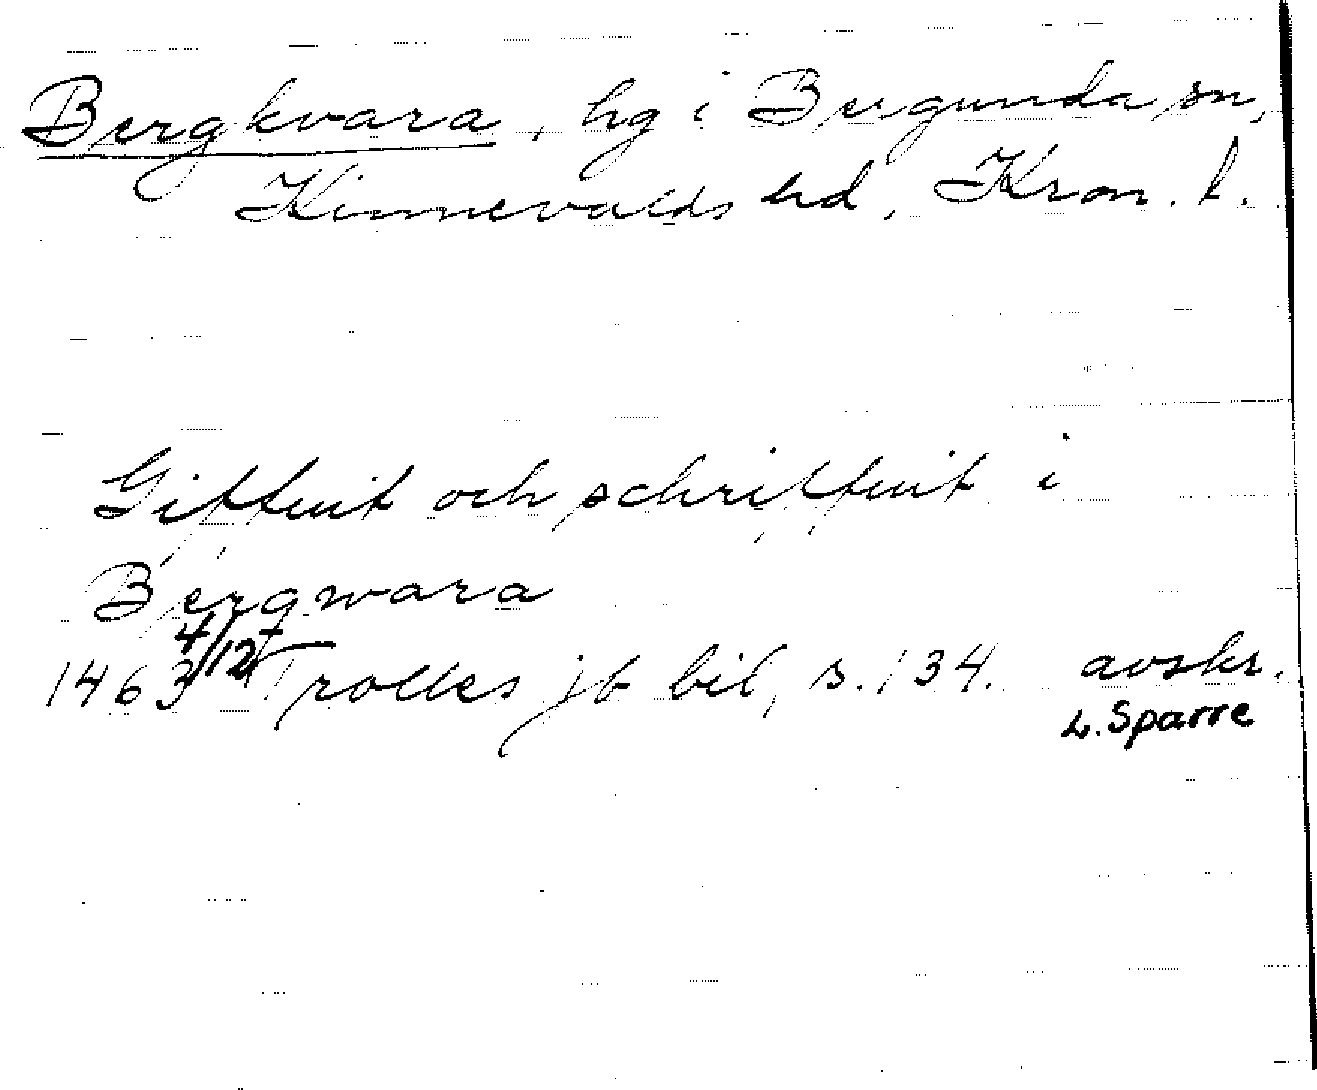 Bergkvara, hg i Bergunda sn,
Kinnevalds hd, Kron. l.
Giffuit och schriffuit i
Bergwara
1463 4/12 Trolles jb bil, s. 134. avskr.
L. Sparre